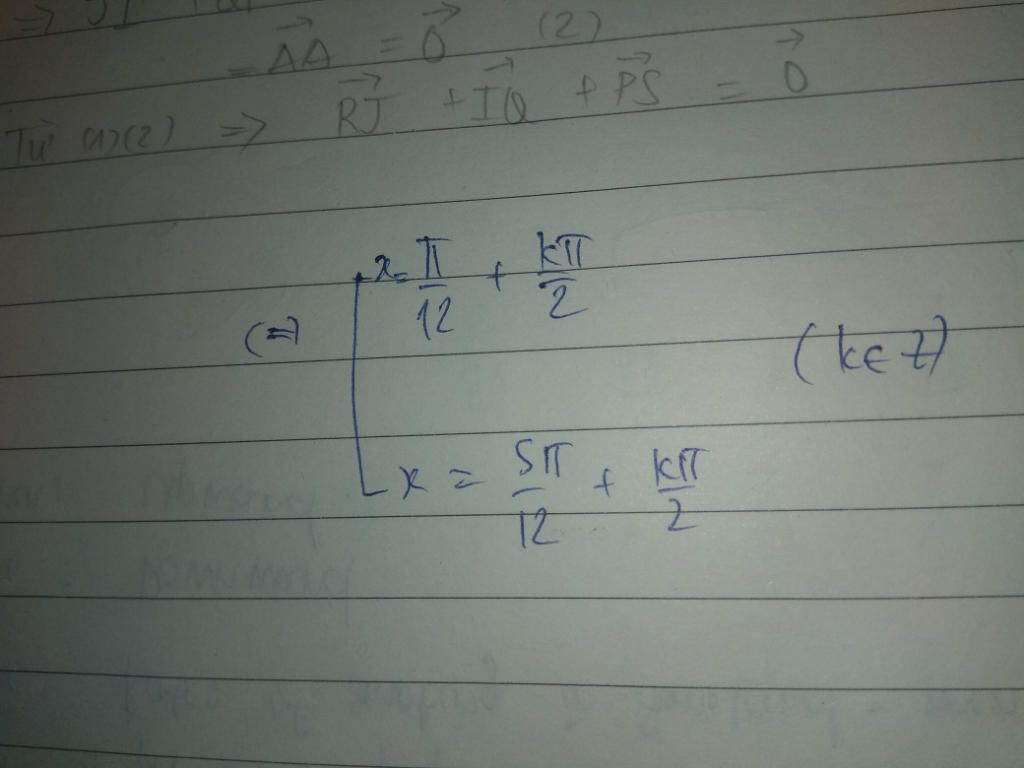 = AA⃗ = 0⃗ (2)
Từ (1)(2) => RJ⃗ + IQ⃗ + PS⃗ = 0⃗
x = π/12 + kπ/2
(=) (k ∈ Z)
x = 5π/12 + kπ/2